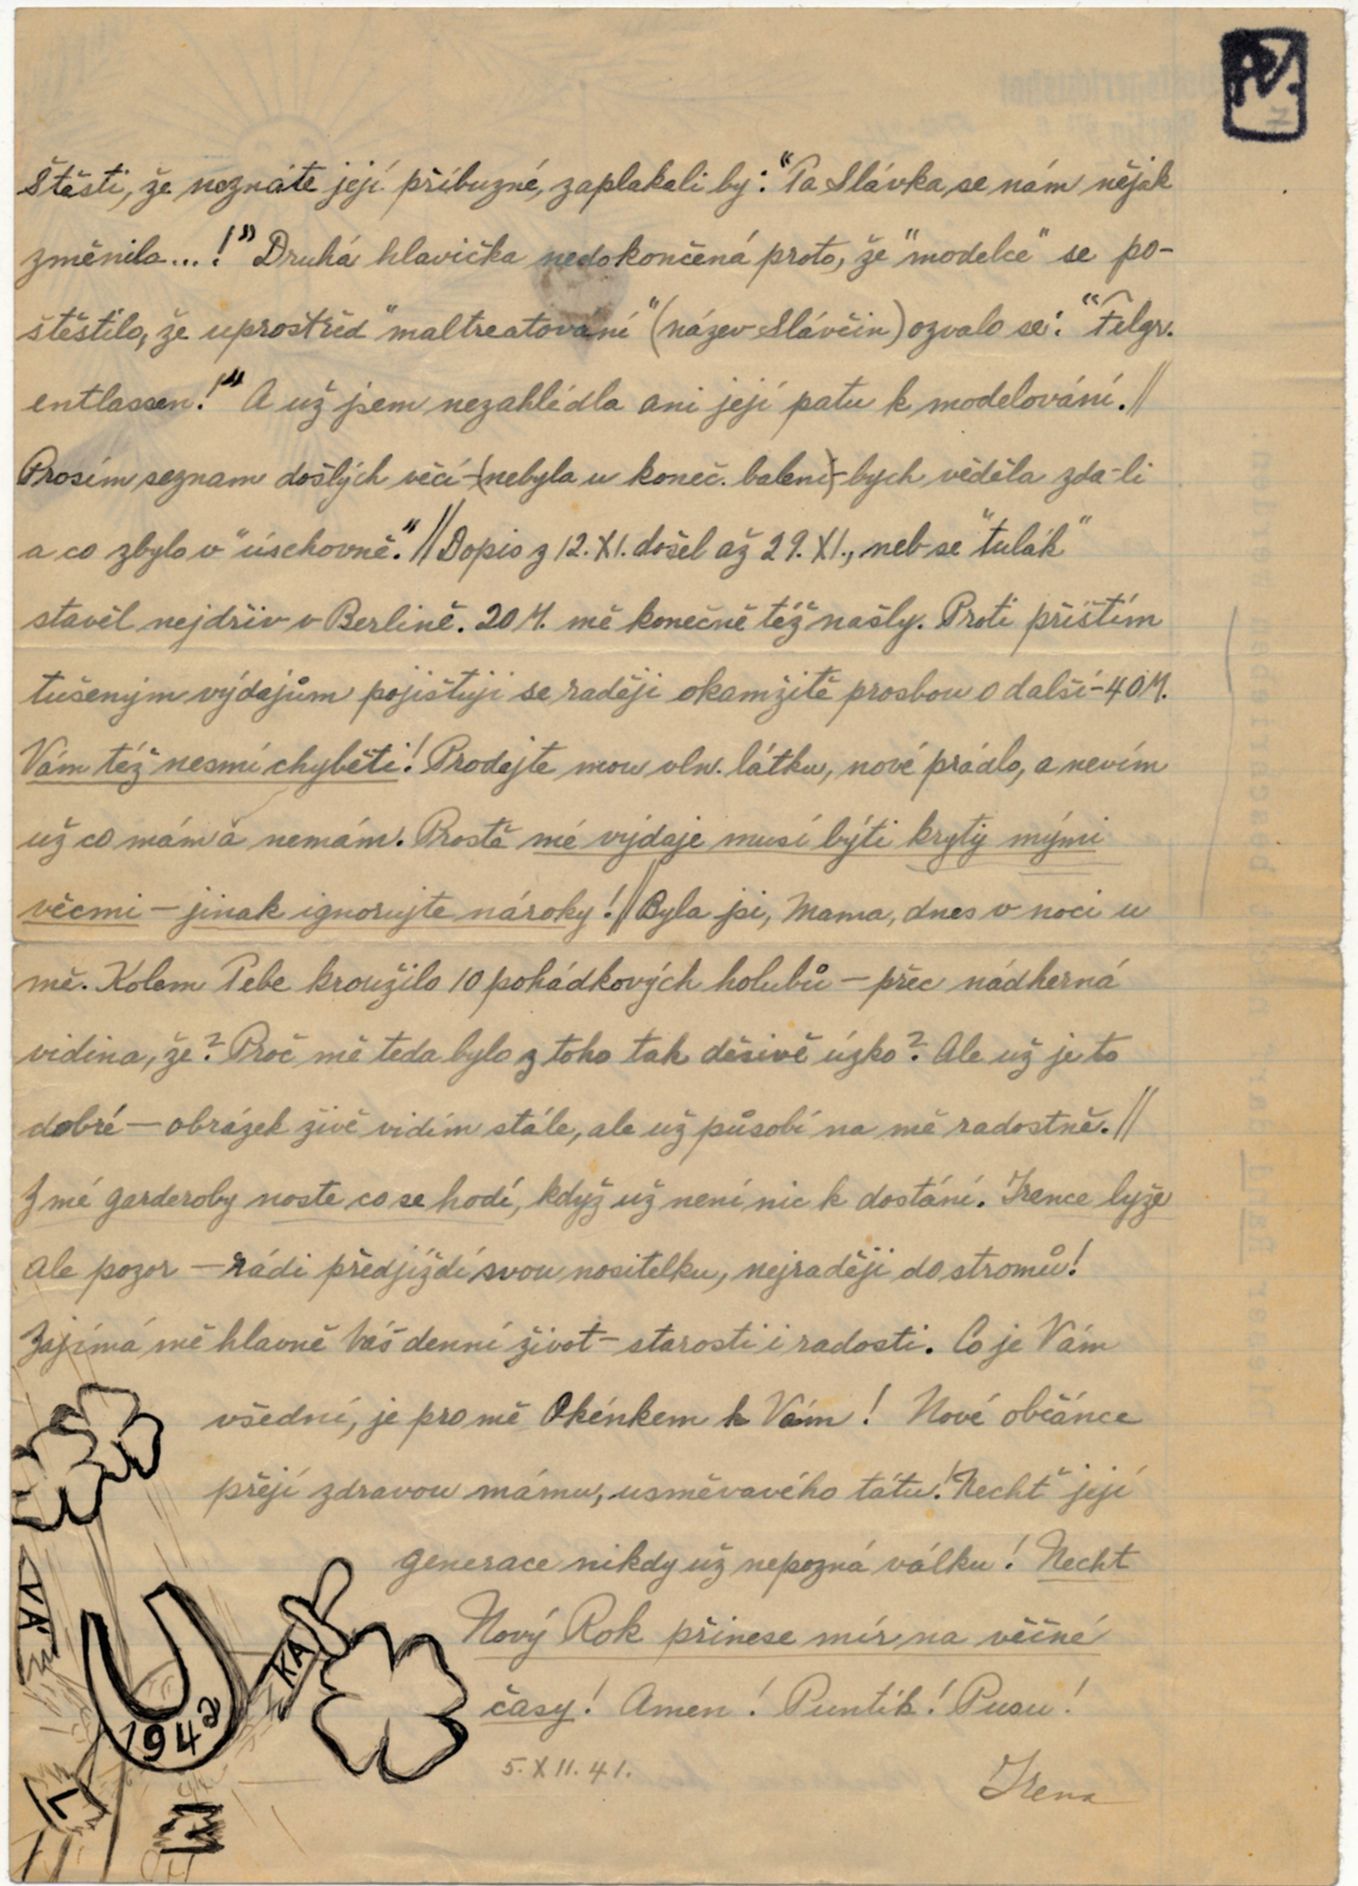 Štěstí, že neznáte její příbuzné, zaplakali by: "Ta Slávka se nám nějak
změnila...!" Druhá hlavička nedokončená proto, že "modelce" se po-
štěstilo, že uprostřed "maltreatování" (název Slávčin) ozvalo se: "Felgr.
entlassen!" A už jsem nezahlédla ani její patu k modelování. //
Prosím seznam došlých věcí - (nebyla u koneč. balení) - bych věděla zda-li
a co zbylo v "úschovně." // Dopis z 12. XI. došel až 29. XI., neb se "tulák"
stavěl nejdřív v Berlině. 20 M. mě konečně též našly. Proti příštím
tušeným výdajům pojištuji se raději okamžitě prosbou o další - 40 M.
Vám též nesmí chyběti! Prodejte mou vln. látku, nové prádlo, a nevím
už co mám a nemám. Prostě mé výdaje musí býti kryty mými
věcmi - jinak ignorujte nároky! // Byla jsi, Mama, dnes v noci u
mě. Kolem Tebe kroužilo 10 pohádkových holubů - přec nádherná
vidina, že? Proč mě teda bylo z toho tak děsivě úzko? Ale už je to
dobré - obrázek živě vidím stále, ale už působí na mě radostně. //
Z mé garderoby noste co se hodí, když už není nic k dostání. Irence lyže
ale pozor - rádi předjíždí svou nositelku, nejraději do stromů!
Zajímá mě hlavně Váš denní život - starosti i radosti. Co je Vám
všední, je pro mě Okénkem k Vám! Nové občánce
přejí zdravou mámu, usměvavého tátu! Nechť její
generace nikdy už nepozná válku! Necht
Nový Rok přinese mír na věčné
časy! Amen! Puntík! Pusu!
5. XII. 41.
Irena
VA
KA
1942
L